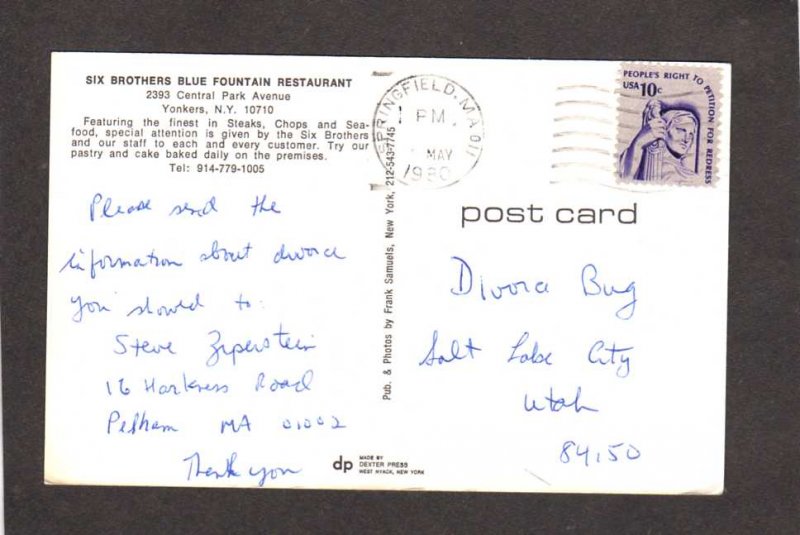 SIX BROTHERS BLUE FOUNTAIN RESTAURANT
2393 Central Park Avenue
Yonkers, N.Y. 10710
Featuring the finest in Steaks, Chops and Sea-
food, special attention is given by the Six Brothers
and our staff to each and every customer. Try our
pastry and cake baked daily on the premises.
Tel: 914-779-1005
Please send the
information about divorce
you showed to:
Steve Ziperstein
16 Harkness Road
Pelham MA 01002
Thank you
Pub. & Photos by Frank Samuels, New York, 212-543-7745
dp
MADE BY
DEXTER PRESS
WEST NYACK, NEW YORK
SPRINGFIELD, MA 011
PM
MAY
1980
PEOPLE'S RIGHT TO PETITION FOR REDRESS
USA 10c
post card
Divorce Bug
Salt Lake City
Utah
84150